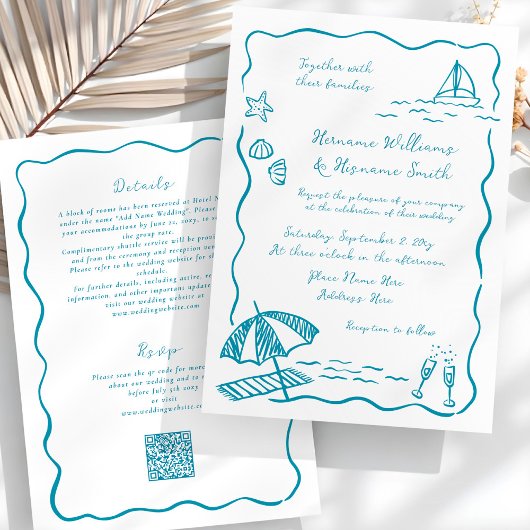 Together with
their families
Hername Williams
& Hisname Smith
Request the pleasure of your company
at the celebration of their wedding
Saturday, September 2, 20xy
At three o'clock in the afternoon
Place Name Here
Address Here
Reception to follow
Details
A block of rooms has been reserved at Hotel N
under the name "Add Name Wedding". Please
your accommodations by June 22, 20xy, to
the group rate.
Complimentary shuttle service will be provid
and from the ceremony and reception
Please refer to the wedding website for
schedule.
For further details, including attire, re
information, and other important updates
visit our wedding website at
www.weddingwebsite.com
Rsvp
Please scan the qr code for more
about our wedding and to
before July 5th 20xy
or visit
www.weddingwebsite.c